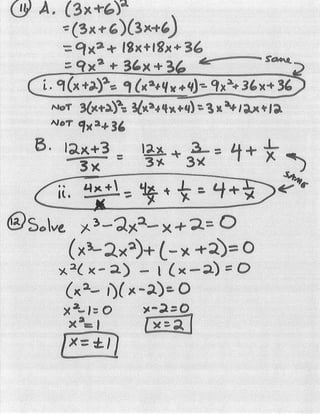 (11) A. (3x+6)²
=(3x+6)(3x+6)
=9x²+18x+18x+36
=9x²+36x+36 same
i. 9(x+2)²=9(x²+4x+4)=9x²+36x+36
NOT 3(x+2)²=3(x²+4x+4)=3x²+12x+12
NOT 9x²+36
B. 12x+3/3x = 12x/3x + 3/3x = 4+1/x
same
ii. 4x+1/x = 4x/x + 1/x = 4+1/x
(12) Solve x³-2x²-x+2=0
(x³-2x²)+(-x+2)=0
x²(x-2) -1(x-2)=0
(x²-1)(x-2)=0
x²-1=0 x-2=0
x²=1 x=2
x=±1